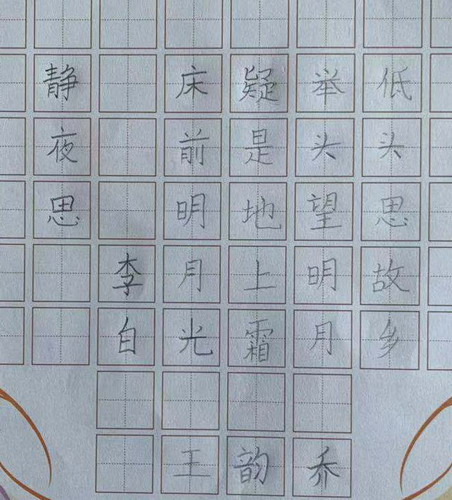 静夜思
李白
床前明月光
疑是地上霜
举头望明月
低头思故乡
王韵乔